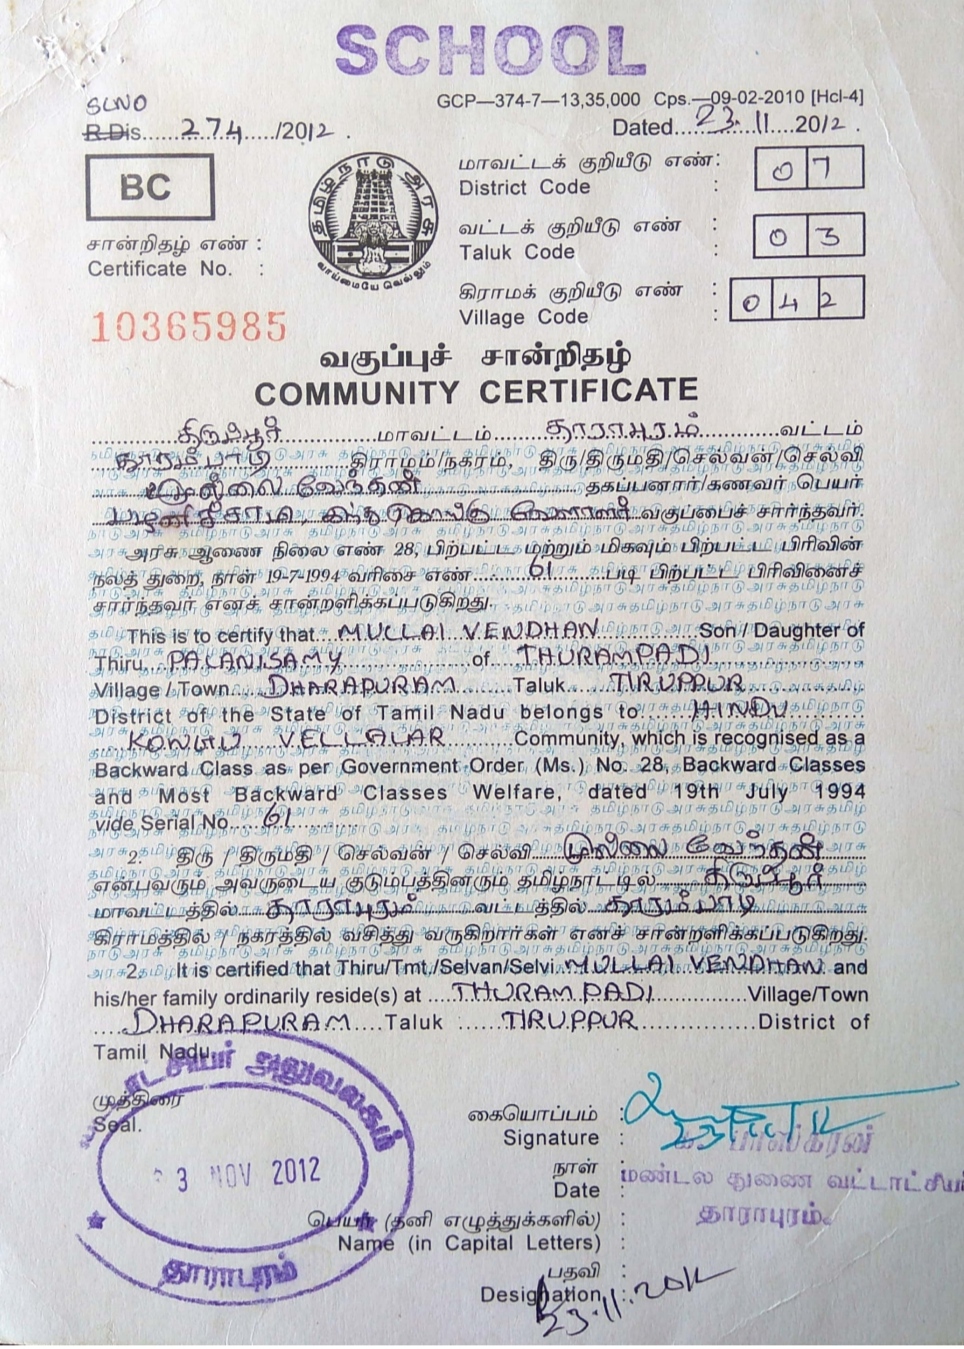 SCHOOL
GCP—374-7—13,35,000 Cps.—09-02-2010 [Hcl-4]
SLNO
R.Dis......274...../2012. Dated....23.11....2012.
BC
தமிழ்நாடு அரசு
வாய்மையே வெல்லும்
மாவட்டக் குறியீடு எண் :
District Code : 07
வட்டக் குறியீடு எண் :
Taluk Code : 03
கிராமக் குறியீடு எண் :
Village Code : 042
சான்றிதழ் எண் :
Certificate No. :
10365985
வகுப்புச் சான்றிதழ்
COMMUNITY CERTIFICATE
திருப்பூர் மாவட்டம் தாராபுரம் வட்டம்
கிராமம்/நகரம், திரு/திருமதி/செல்வன்/செல்வி
முல்லை வேந்தன் தகப்பனார்/கணவர் பெயர்
பழனிச்சாமி, இந்து கொங்கு வேளாளர் வகுப்பைச் சார்ந்தவர்.
அரசு ஆணை நிலை எண் 28, பிற்பட்ட மற்றும் மிகவும் பிற்பட்ட பிரிவின்
நலத் துறை, நாள் 19-7-1994 வரிசை எண் 61 படி பிற்பட்ட பிரிவினைச்
சார்ந்தவர் எனச் சான்றளிக்கப்படுகிறது.
This is to certify that MULLAI VENDHAN Son / Daughter of
Thiru PALANISAMY of THURAMPADI
Village / Town DHARAPURAM Taluk TIRUPPUR
District of the State of Tamil Nadu belongs to HINDU
KONGU VELLALAR Community, which is recognised as a
Backward Class as per Government Order (Ms.) No. 28, Backward Classes
and Most Backward Classes Welfare, dated 19th July 1994
vide Serial No. 61
2. திரு / திருமதி / செல்வன் / செல்வி முல்லை வேந்தன்
என்பவரும் அவருடைய குடும்பத்தினரும் தமிழ்நாட்டில் திருப்பூர்
மாவட்டத்தில் தாராபுரம் வட்டத்தில்
கிராமத்தில் / நகரத்தில் வசித்து வருகிறார்கள் எனச் சான்றளிக்கப்படுகிறது.
2. It is certified that Thiru/Tmt./Selvan/Selvi. MULLAI VENDHAN and
his/her family ordinarily reside(s) at THURAMPADI Village/Town
DHARAPURAM Taluk TIRUPPUR District of
Tamil Nadu.
முத்திரை
Seal.
அலுவலகம்
3 NOV 2012
தாராபுரம்
கையொப்பம் :
Signature :
23/11/12
பாஸ்கரன்
நாள் :
Date :
மண்டல துணை வட்டாட்சியர்
தாராபுரம்.
பெயர் (தனி எழுத்துக்களில்) :
Name (in Capital Letters) :
பதவி :
Designation :
23.11.2012